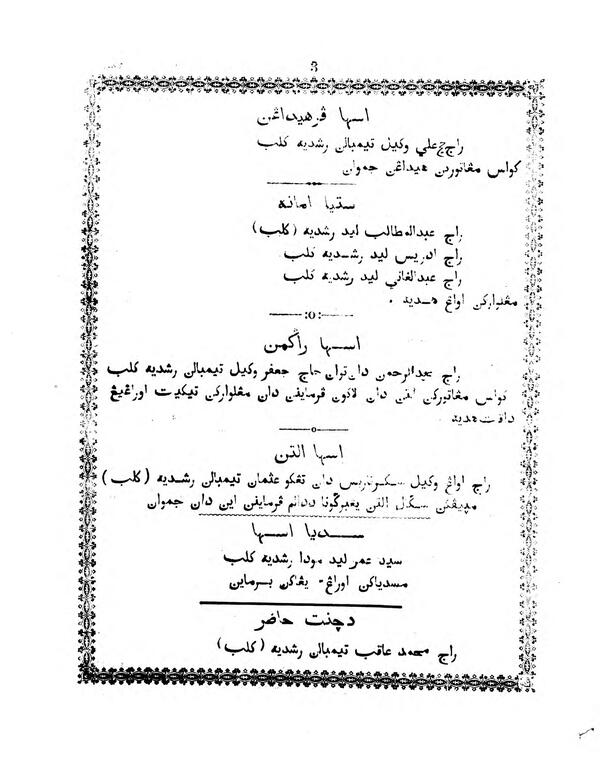 3
اسها ڤرهيداڠن
راج علي وكيل تيمبالن رشديه كلب
كواس مڠاتوركن هيداڠن جموان
ستيا امانه
راج عبدالمطالب ليد رشديه (كلب)
راج ادريس ليد رشديه كلب
راج عبدالغاني ليد رشديه كلب
مڠلواركن اواڠ هديه .
اسها راݢمن
راج عبدالرحمن دان توان حاج جعفر وكيل تيمبالن رشديه كلب
كواس مڠاتوركن التن دان لاكون ڤرماينن دان مڠلواركن تيكيت اورڠيڠ
داڤت هديه
اسها التن
راج اواڠ وكيل دان تڠكو عثمان تيمبالن رشديه (كلب)
سݢل التن يڠبرݢونا ددالم ڤرماينن اين دان جموان
سديا اسها
سيد عمر ليد مودا رشديه كلب
مسدياكن اورڠ٢ يڠاكن برماين
دچنت حاضر
راج محمد عاقب تيمبالن رشديه (كلب)